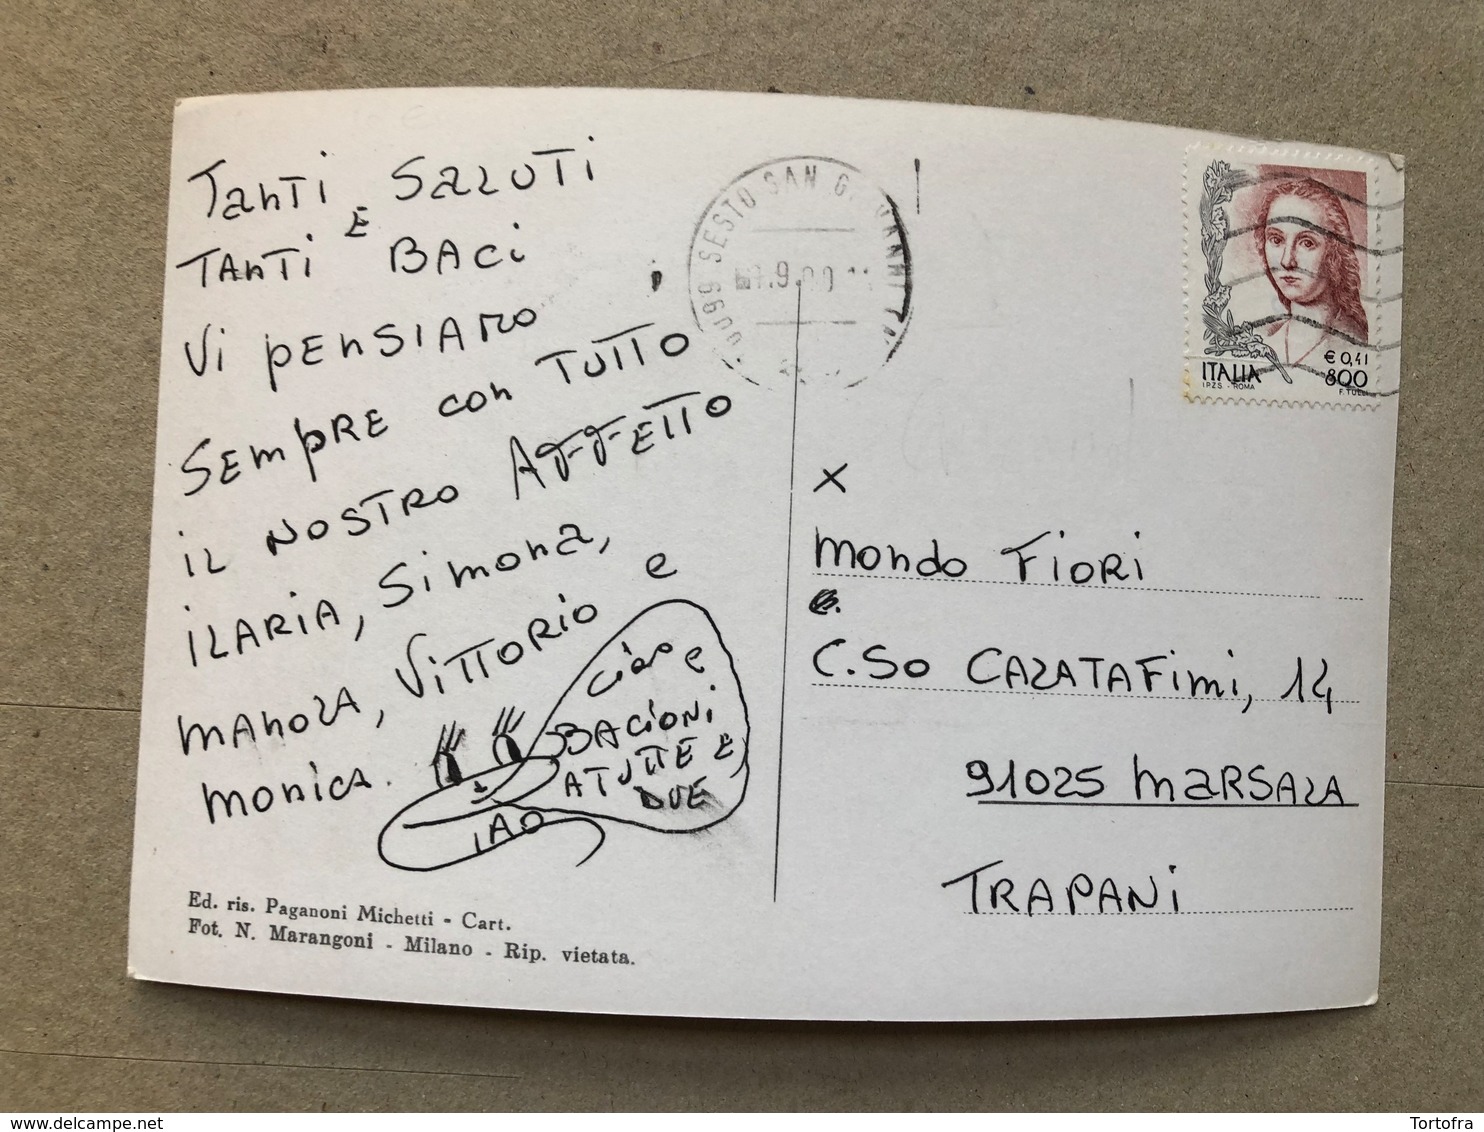 TANTI SALUTI
E
TANTI BACI
Vi PENSIAMO
SEMPRE CON TUTTO
IL NOSTRO AFFETTO
ILARIA, SIMONA,
MANOLA, VITTORIO e
MONICA.
CIAO e
BACIONI
A TUTTE E
DUE
IAO
Ed. ris. Paganoni Michetti - Cart.
Fot. N. Marangoni - Milano - Rip. vietata.
SESTO SAN G. OVANNI
.9.
€ 0,41
ITALIA 800
I.P.Z.S. - ROMA F. TULLI
X
MONDO FIORI
C.SO CALATAFIMI, 14
91025 MARSALA
TRAPANI
www.delcampe.net
Tortofra